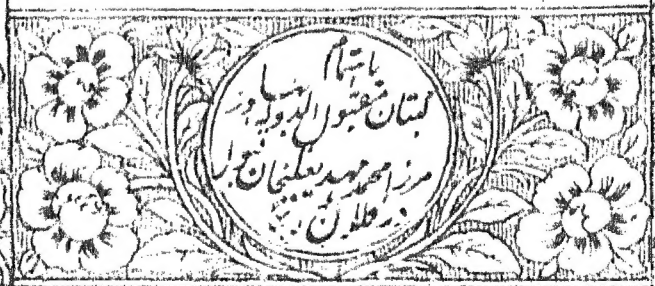 باہتمام
کپتان مقبول الدولہ بہادر
مرزا محمد مہدی علیخان قبول